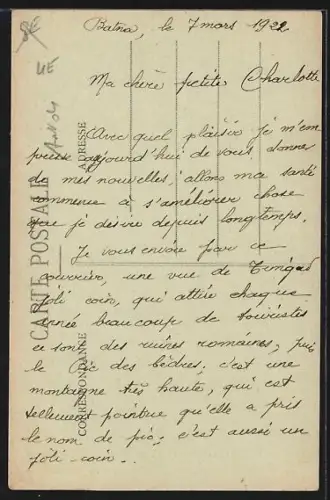 Batna, le 7 mars 1922
Ma chère petite Charlotte
Avec quel plaisir je m'em
presse aujourd'hui de vous donne
de mes nouvelles, allons ma santé
commence à s'améliorer chose
que je désire depuis longtemps.
Je vous envoie par ce
courrier, une vue de Timgad
joli coin, qui attire chaque
année beaucoup de touristes
ce sont des ruines romaines; puis
le Pic des Cèdres, c'est une
montagne très haute, qui est
tellement pointue qu'elle a pris
le nom de pic; c'est aussi un
joli coin..
CARTE POSTALE
CORRESPONDANCE
ADRESSE